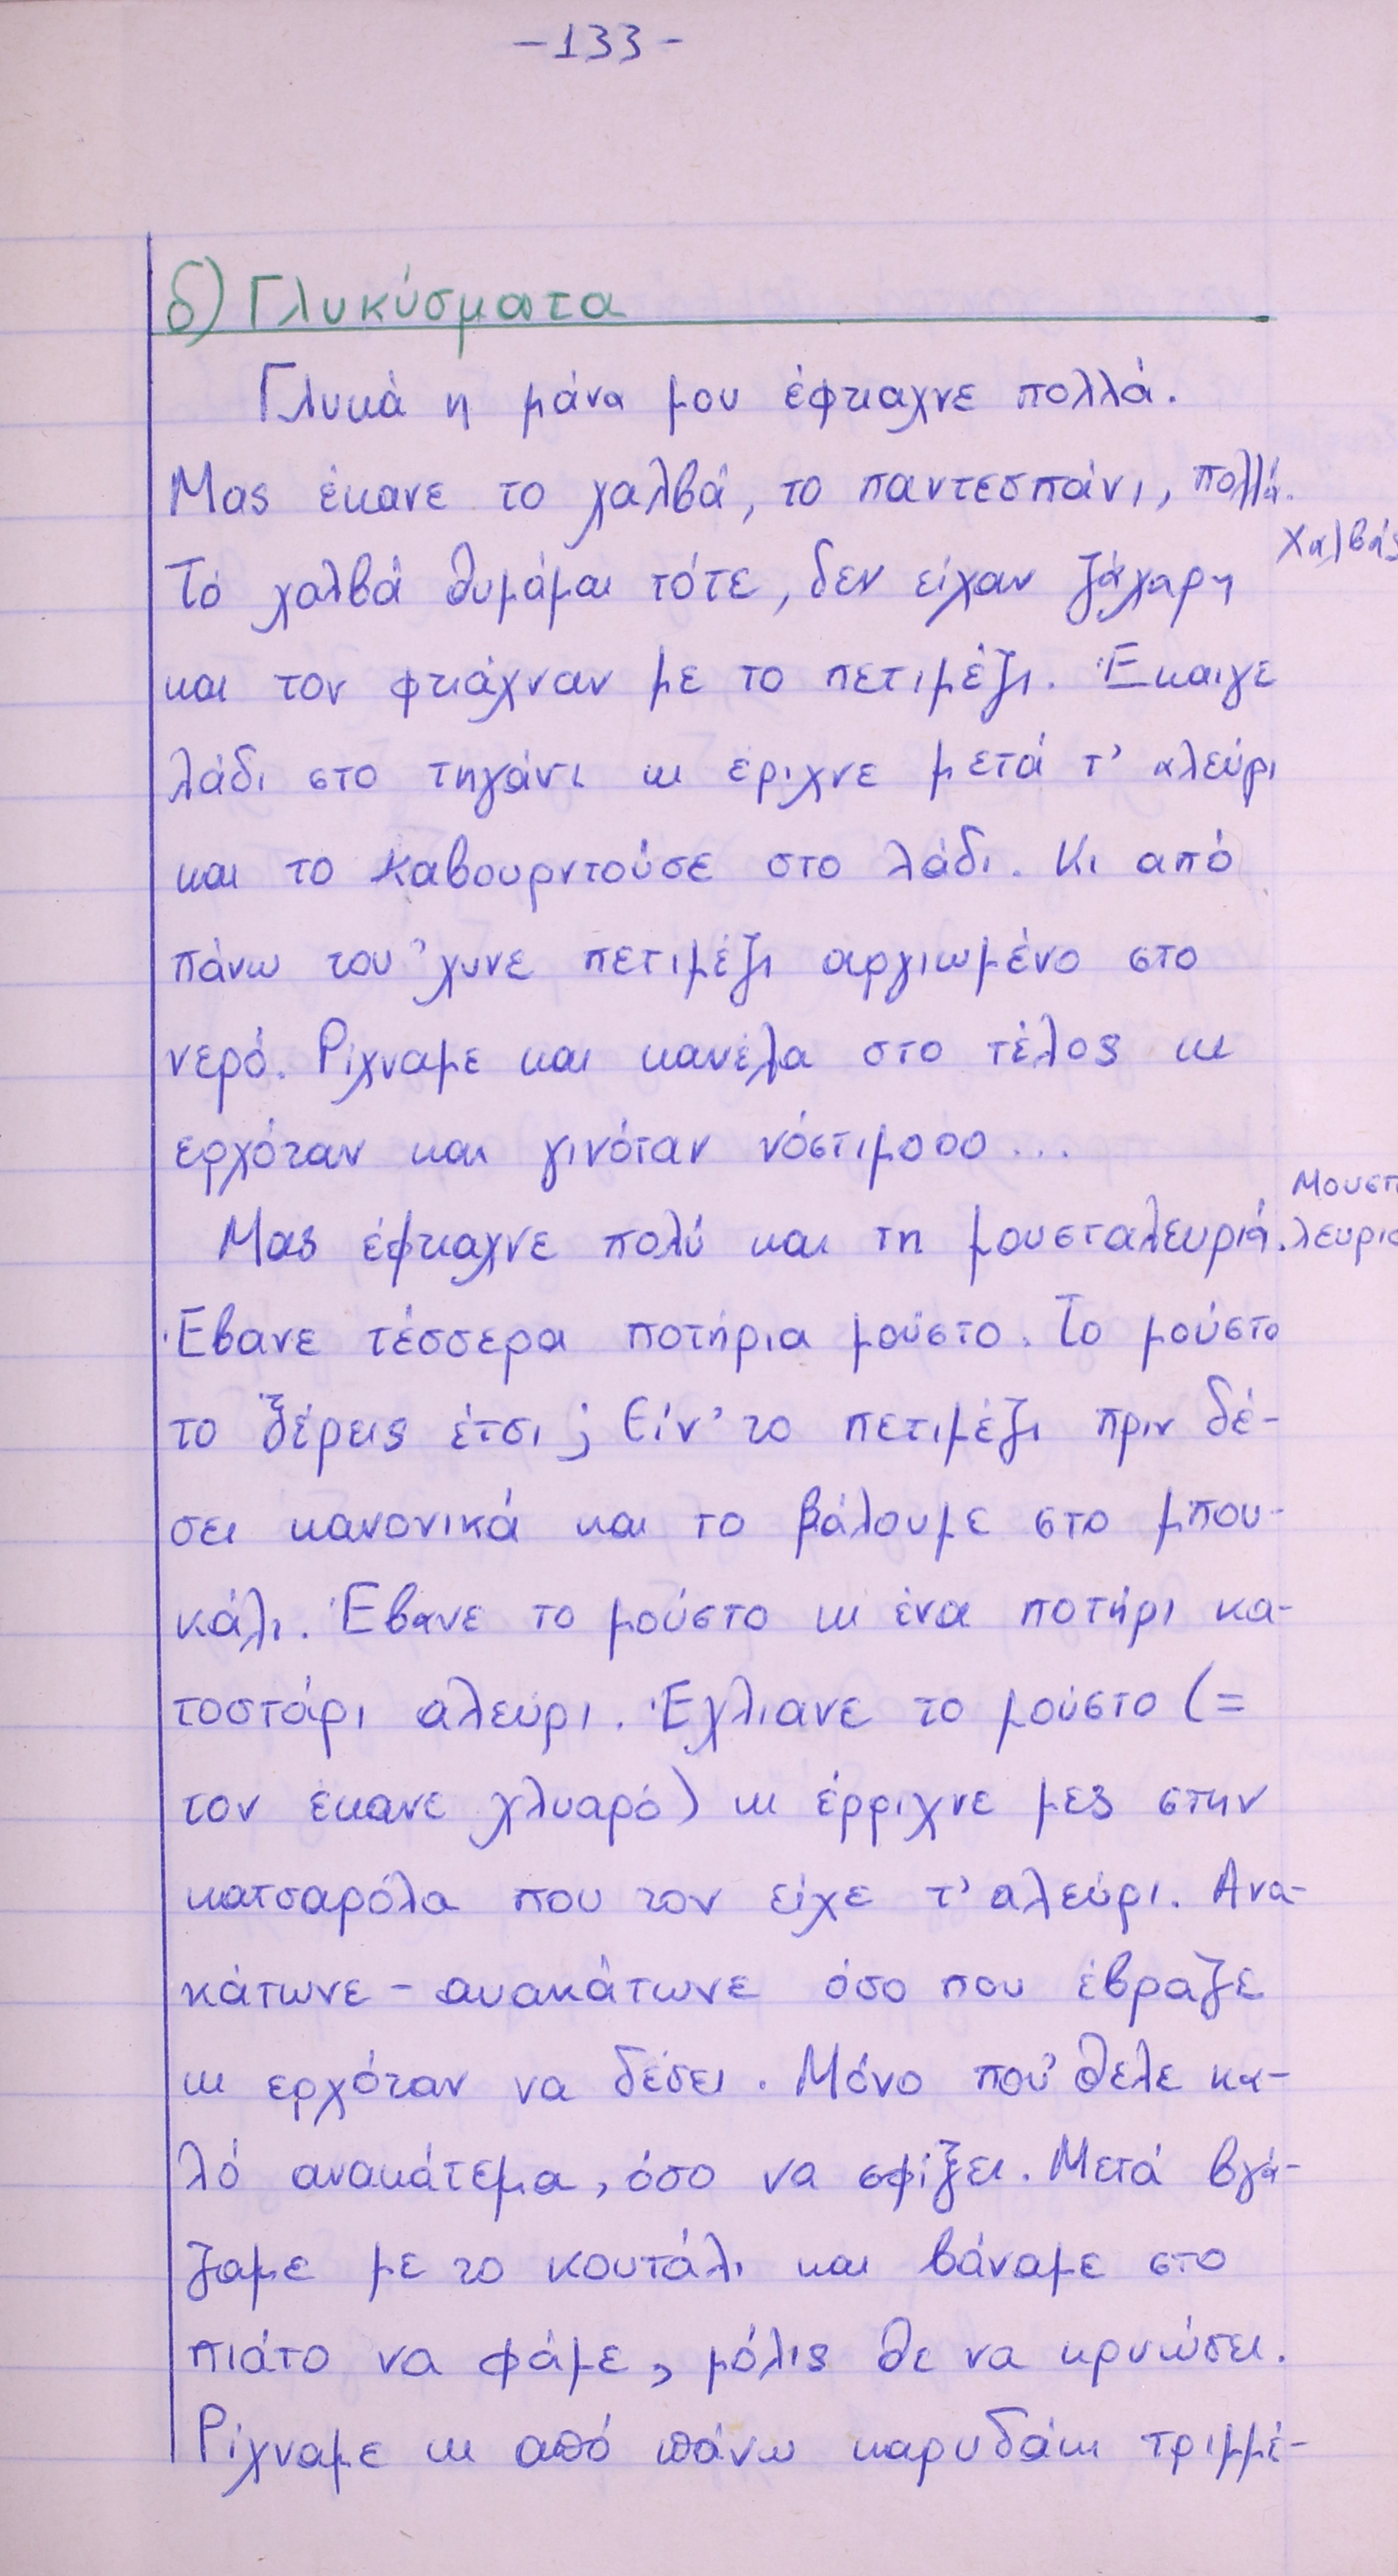 -133-
δ) Γλυκύσματα
Γλυκά η μάνα μου έφτιαχνε πολλά.
Μας έκανε το χαλβά, το παντεσπάνι, πολλά.
Χαλβάς
Τό χαλβά θυμάμαι τότε, δεν είχαν ζάχαρη
και τον φτιάχναν με το πετιμέζι. Έκαιγε
λάδι στο τηγάνι κι έριχνε μετά τ' αλεύρι
και το καβουρντούσε στο λάδι. Κι από
πάνω του 'χυνε πετιμέζι αργιωμένο στο
νερό. Ρίχναμε και κανέλα στο τέλος κι
ερχόταν και γινόταν νόστιμοοο...
Μουστ
Μας έφτιαχνε πολύ και τη μουσταλευριά. λευριά
Έβανε τέσσερα ποτήρια μούστο. Το μούστο
το ξέρεις έτσι; Είν' το πετιμέζι πριν δέ-
σει κανονικά και το βάλουμε στο μπου-
κάλι. Έβανε το μούστο κι ένα ποτήρι κα-
τοστάρι αλεύρι. Έχλιανε το μούστο (=
τον έκανε χλυαρό) κι έρριχνε μες στην
κατσαρόλα που τον είχε τ' αλεύρι. Ανα-
κάτωνε - ανακάτωνε όσο που έβραζε
κι ερχόταν να δέσει. Μόνο πού 'θελε κα-
λό ανακάτεμα, όσο να σφίξει. Μετά βγά-
ζαμε με το κουτάλι και βάναμε στο
πιάτο να φάμε, μόλις θε να κρυώσει.
Ρίχναμε κι από πάνω καρυδάκι τριμμέ-